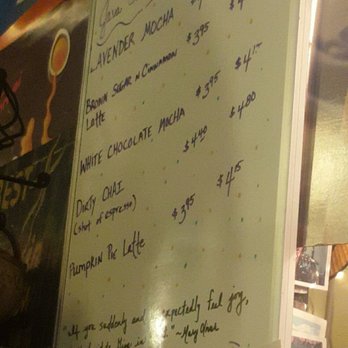 Java
LAVENDER MOCHA $3.95 $4
BROWN SUGAR N CINNAMON
Latte $3.95 $4.15
WHITE CHOCOLATE MOCHA $4.40 $4.80
DIRTY CHAI
(shot of espresso) $3.85 $4.15
PUMPKIN PIE Latte
"If you suddenly and unexpectedly feel joy,
~Mary Oliver